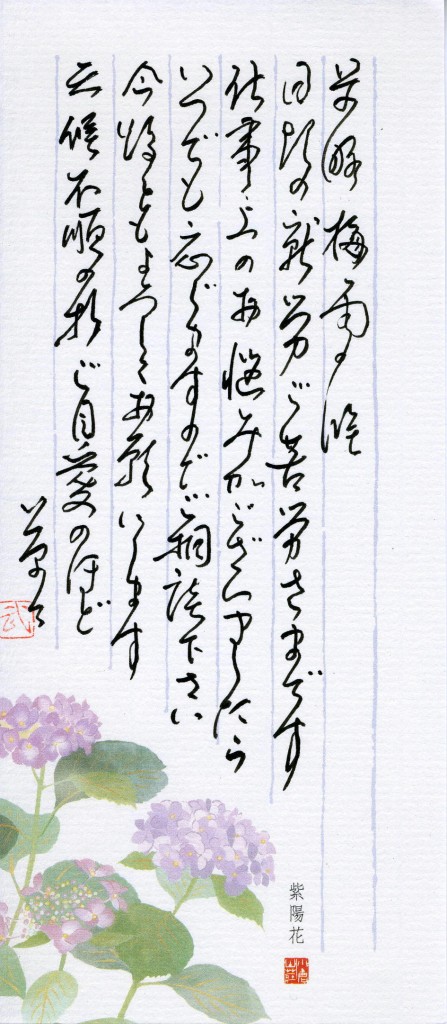 前略梅雨の
日頃の就労ご苦労さまです
仕事上のお悩みがございましたら
いつでも応じますのでご相談下さい
今後ともよろしくお願いします
天候不順の折ご自愛のほど
草々
武
紫陽花